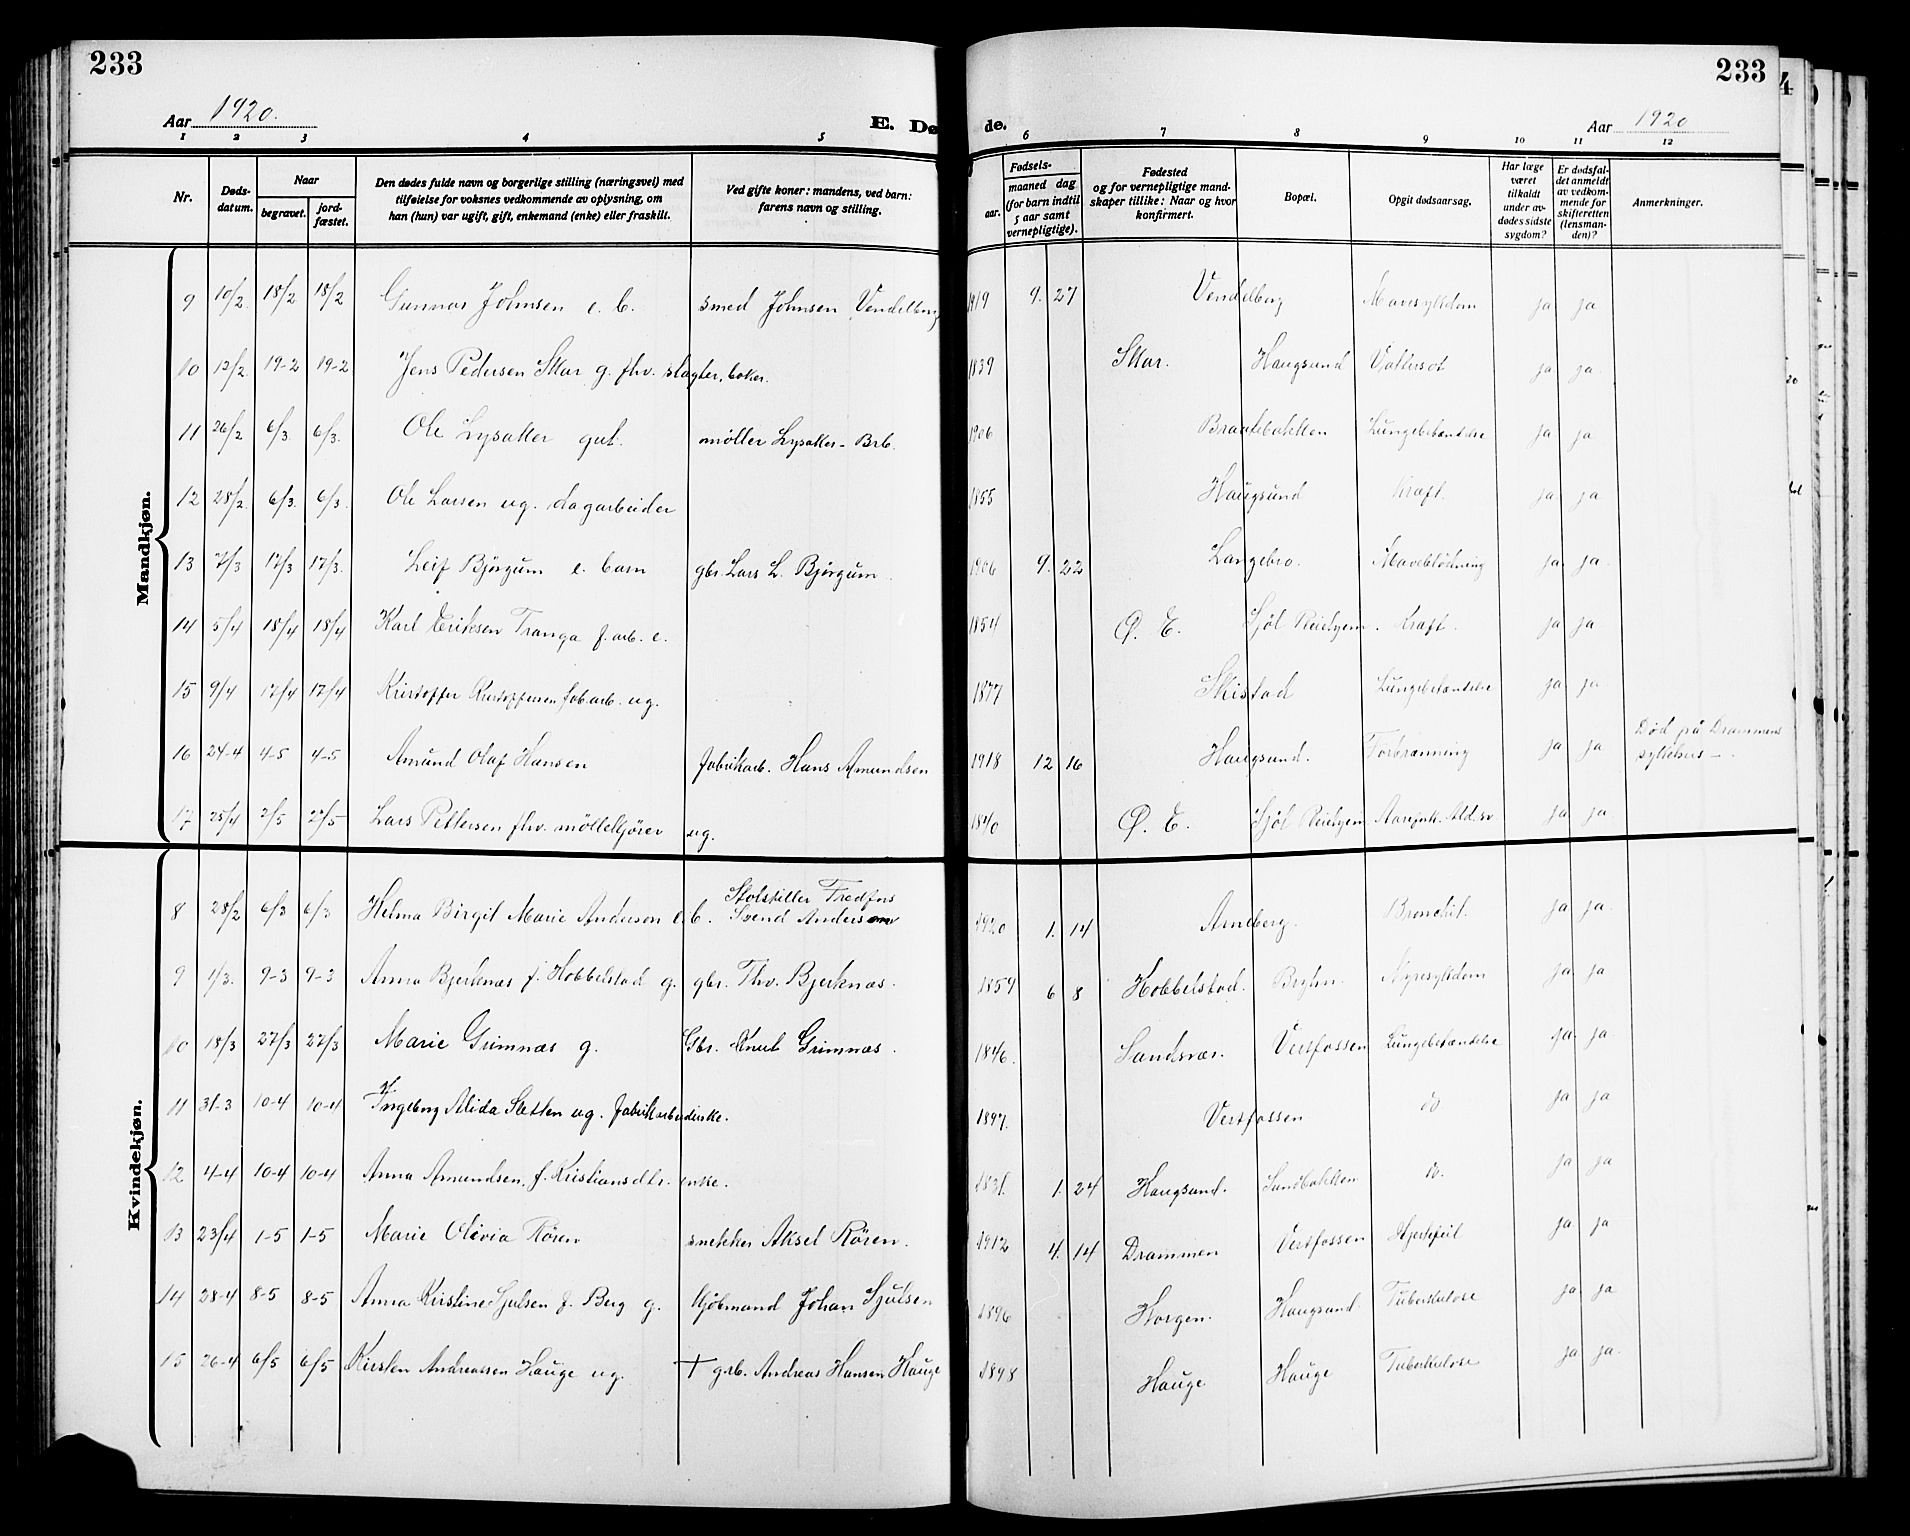 233
233
Aar 1920.
E. Dø
de.
Aar 1920
1 2 3 4 5 6 7 8 9 10 11 12
Nr.
Døds-
datum.
Naar
begravet.
jord-
fæstet.
Den dødes fulde navn og borgerlige stilling (næringsvei) med
tilføielse for voksnes vedkommende av oplysning, om
han (hun) var ugift, gift, enkemand (enke) eller fraskilt.
Ved gifte koner: mandens, ved barn:
farens navn og stilling.
Fødsels-
aar.
maaned dag
(for barn indtil
5 aar samt
vernepligtige).
Fødested
og for vernepligtige mand-
skaper tillike: Naar og hvor
konfirmert.
Bopæl.
Opgit dødsaarsag.
Har læge
været
tilkaldt
under av-
dødes sidste
sygdom?
Er dødsfal-
det anmeldt
av vedkom-
mende for
skifteretten
(lensman-
den)?
Anmerkninger.
Mandkjøn.
9 10/2 18/2 18/2 Gunnar Johnsen e. b. smed Johnsen Vendelborg 1919 9. 27 Vendelborg Mavesykdom ja ja
10 12/2 19-2 19-2 Jens Pedersen Skar g. fhv. slagter, boker. 1839 Skar. Haugsund ja ja
11 26/2 6/3. 6/3. Ole Lysaker gut. møller Lysaker - Brb. 1906 Braatebakken Lungebetændelse ja ja
12 28/2 6/3. 6/3. Ole Larsen ug. dagarbeider 1855 Haugsund Kræft. ja ja
13 7/3 17/3 17/3. Leif Bjørgum e. barn gbr. Lars L. Bjørgum. 1906 9. 22 Langebro. Maveblødning ja ja
14 5/4 18/4 18/4 Karl Eriksen Tranga f. arb. e. 1854 Ø. E. Sjøl Pleiehjem. Kræft. ja ja
15 9/4 17/4 17/4 Kristoffer Kristoffersen fab.arb. ug. 1877 Skistad Lungebetændelse ja ja
16 24-4 4-5 4-5 Amund Olaf Hansen fabrikarb. Hans Amundsen 1918 12 16 Haugsund. Forbrænning ja ja Død på Drammens
sykehus -
17 25/4 2/5 2/5 Lars Pettersen fhv. møllekjører ug. 1840 Ø. E. Sjøl Pleiehjem ja ja
Kvindekjøn.
8 28/2 6/3 6/3 Helma Birgit Marie Anderson e. b. Stolstiller Fredfors
Svend Anderson 1920 1. 14 Arneberg. Bronchit. ja ja
9 1/3. 9-3 9-3 Anna Bjerknæs f. Hobbelstad g. gbr. Thv. Bjerknæs. 1859 6 8 Hobbelstad. Bryhn. Nyresykdom ja ja
10 18/3 27/3 27/3 Marie Grimnæs g. Gbr. Knut Grimnæs. 1846. Sandsvær. Vestfossen Lungebetændelse ja ja
11 31-3 10-4 10-4 Ingeborg Alida Sletten ug. fabrikarbeiderske. 1897. Vestfossen do ja ja
12 4-4 10-4 10-4 Anna Amundsen, f. Kristiansdtr. enke. 1. 24 Haugsund. Sandbakken do. ja ja
13 23/4 1-5 1-5 Marie Olivia Røren snekker Aksel Røren. 1912 4. 14 Drammen Vestfossen Hjertefeil ja ja
14 28-4 8-5 8-5 Anna Kristine Sjulsen f. Berg g. kjøbmand Johan Sjulsen 1896 Horgen. Haugsund. Tuberkulose ja ja
15 26-4 6/5 6/5 Kirsten Andreassen Hauge ug. † grb. Andreas Hansen Hauge 1898 Hauge Hauge Tuberkulose ja ja.